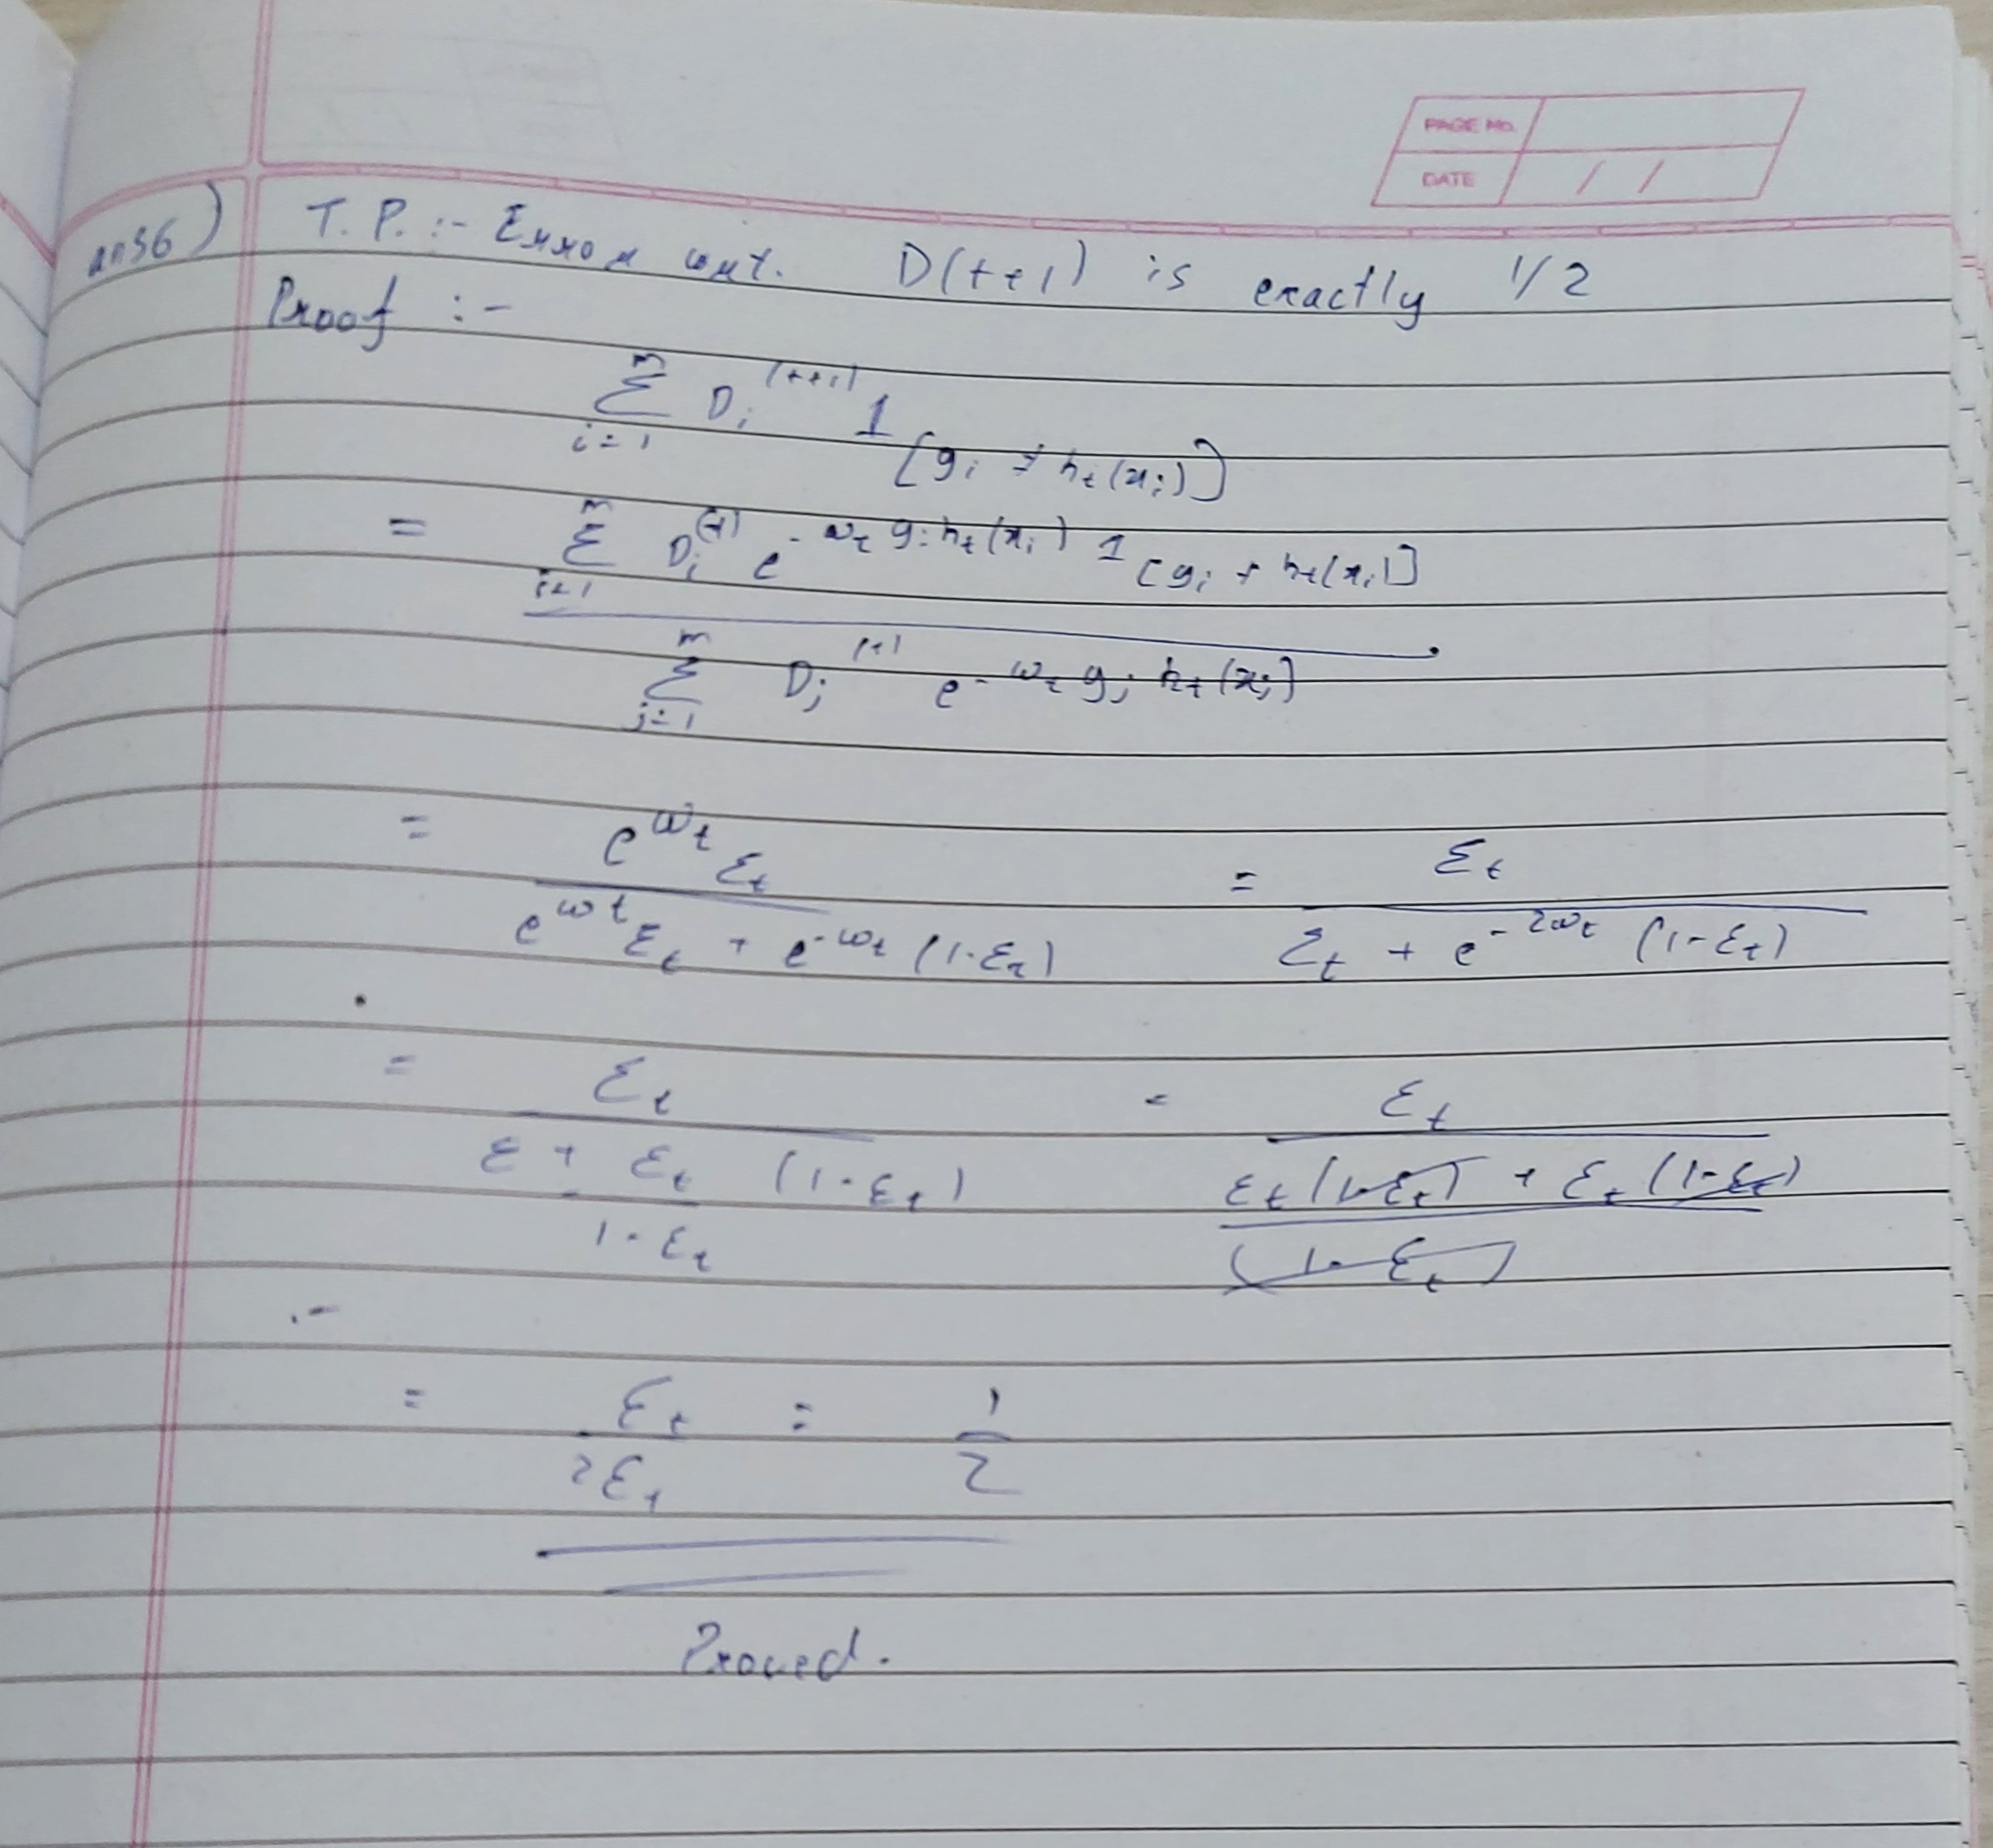 PAGE No.
DATE / /
ans6) T.P. :- Error wrt. D(t+1) is exactly 1/2
Proof :-
m Σ i=1 D_i^(t+1) 1_[y_i ≠ h_t(x_i)]
= m Σ i=1 D_i^(t) e^{-w_t y_i h_t(x_i)} 1_[y_i ≠ h_t(x_i)]
m Σ j=1 D_j^(t) e^{-w_t y_j h_t(x_j)}
= e^{w_t} ε_t = ε_t
e^{w_t} ε_t + e^{-w_t} (1-ε_t) ε_t + e^{-2w_t} (1-ε_t)
= ε_t = ε_t
ε + ε_t (1-ε_t) ε_t(1-ε_t) + ε_t(1-ε_t)
1-ε_t (1-ε_t)
= ε_t = 1
2ε_t 2
Proved.